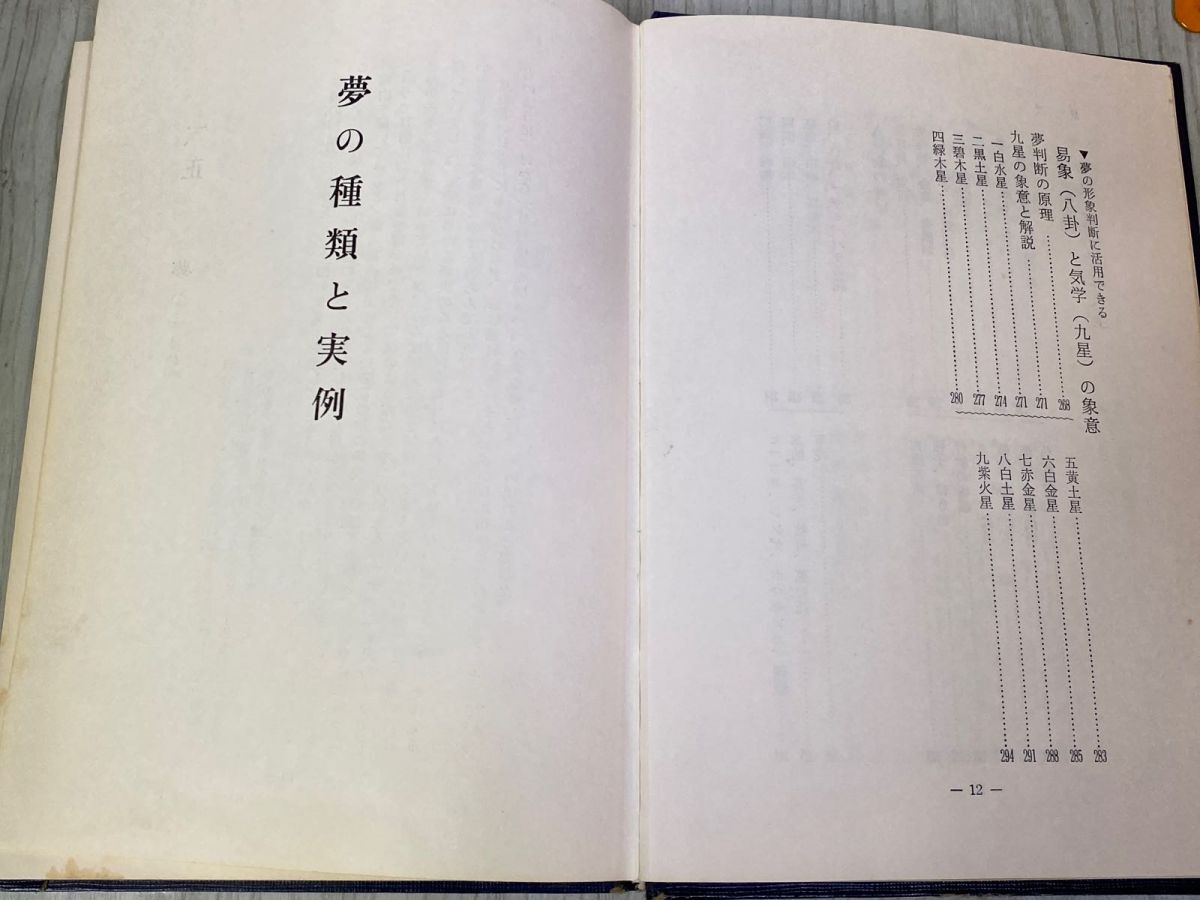 ▼夢の形象判断に活用できる
易象（八卦）と気学（九星）の象意
夢判断の原理……268
九星の象意と解説……271
一白水星……271
二黒土星……274
三碧木星……277
四緑木星……280
五黄土星……283
六白金星……285
七赤金星……288
八白土星……291
九紫火星……294
— 12 —
夢の種類と実例